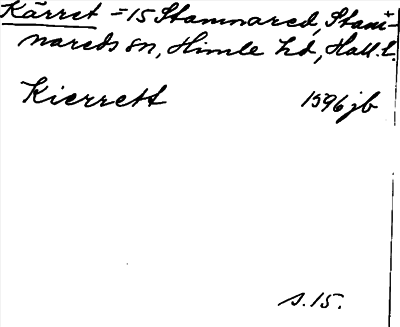 Kärret = 15 Stamnared, Stam-
nareds sn, Himle hd, Hall. l.
Kierrett 1596 jb
s. 15.